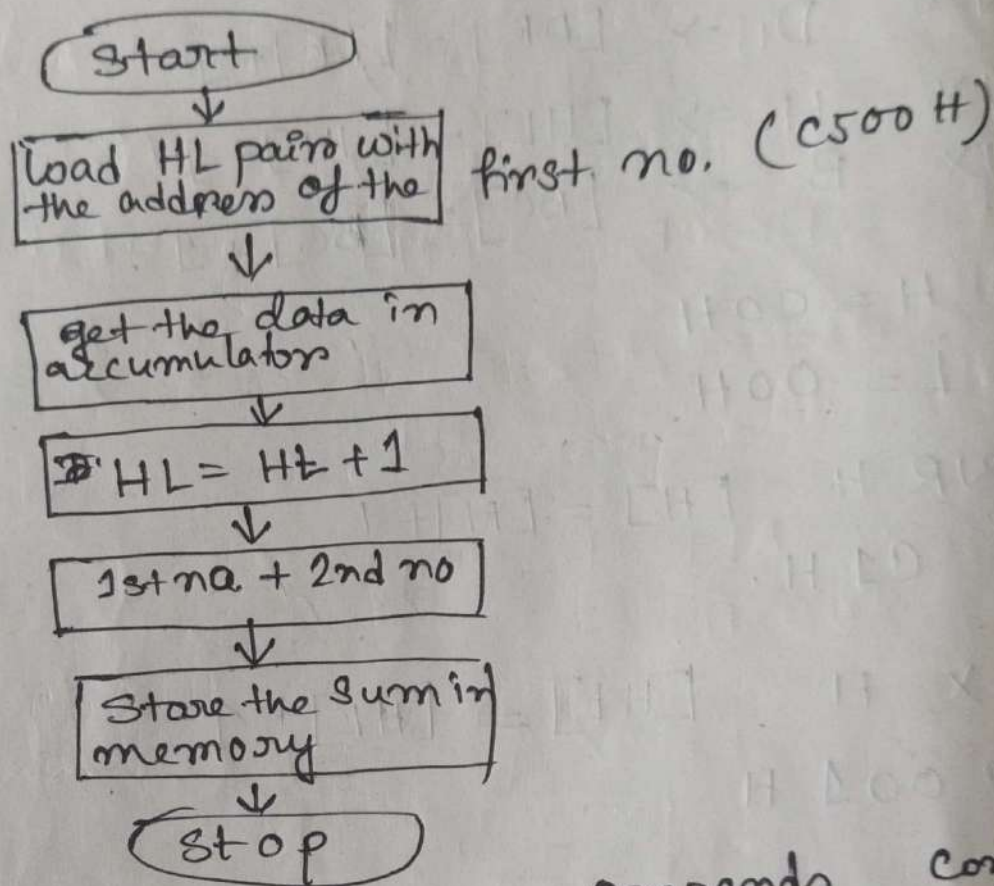 Start
Load HL pair with
the address of the first no. (C500 H)
get the data in
accumulator
HL = HL + 1
1st no + 2nd no
Store the sum in
memory
Stop